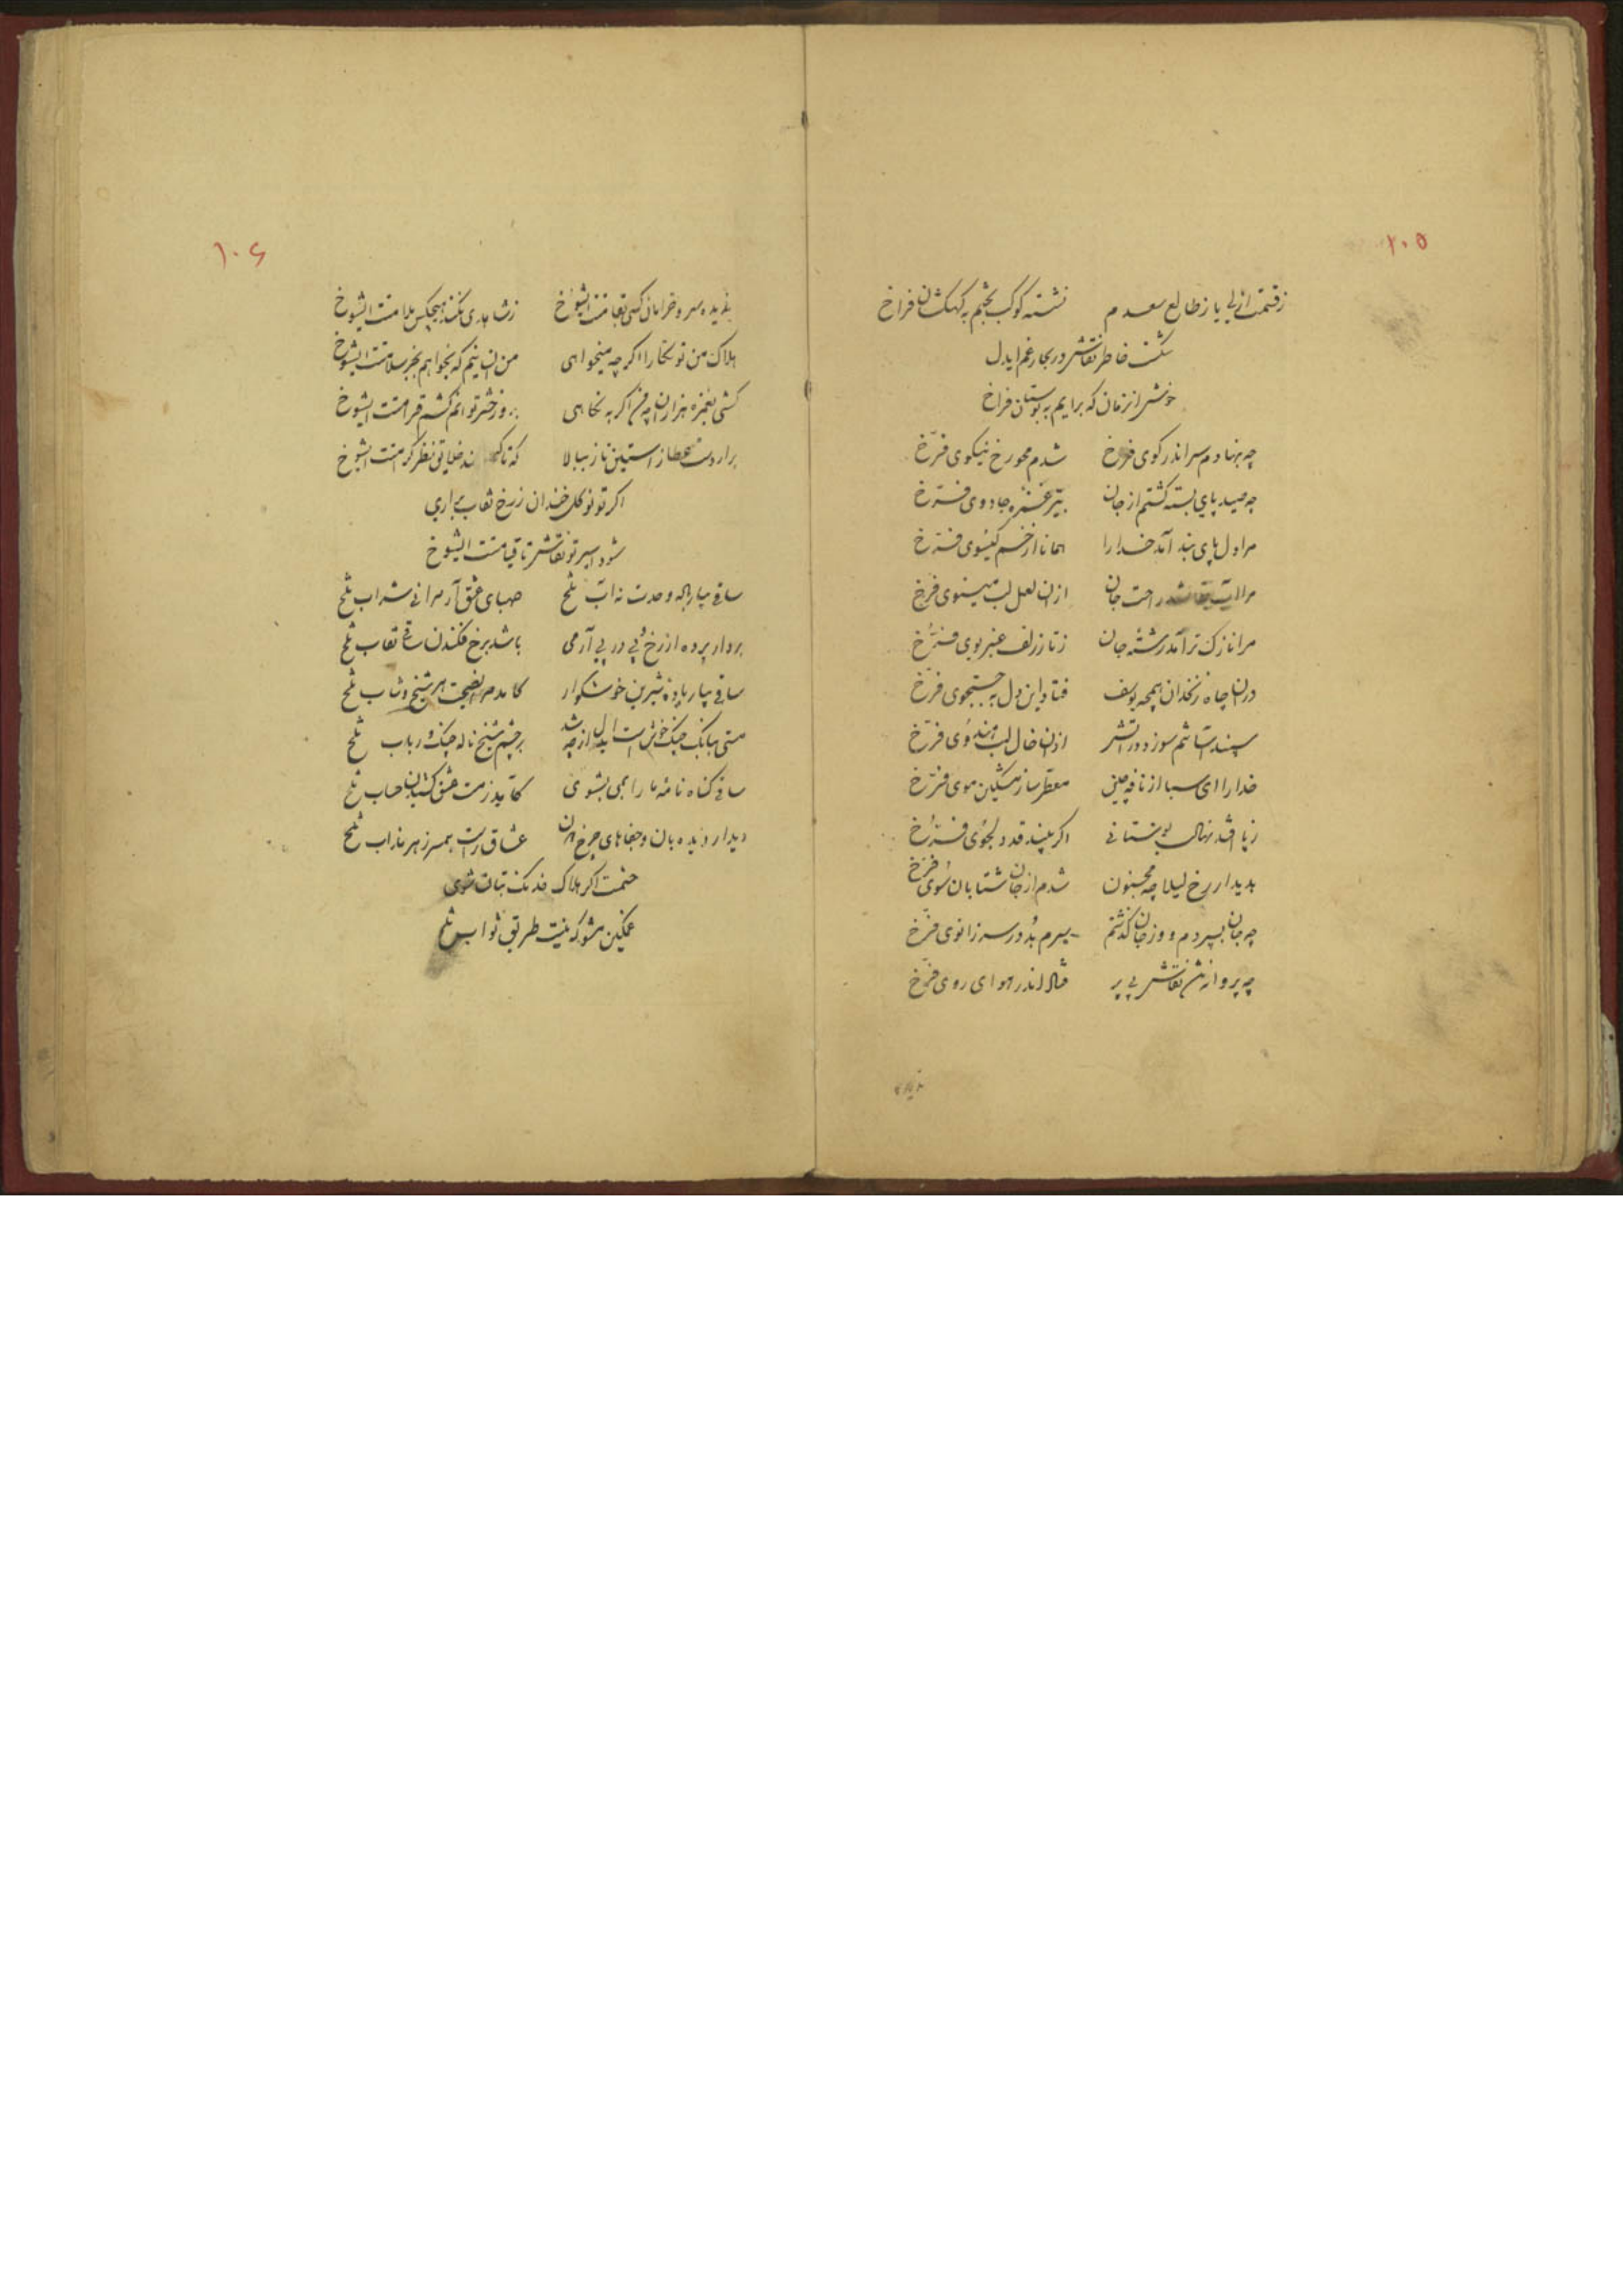 ۱۰۵
زقسمت ازلی یا ز طالع سعدم نشسته کوکب بختم به کهکشان فراخ
شکست خاطر نقاش در بحار غم ایدل
خوش انزمان که برایم به بوستان فراخ
چه بنهادم سر اندر کوی فرخ شدم محو رخ نیکوی فرّخ
چه صید پای بسته کشتم از جان بتیر غمزه جادوی فرّخ
مرا دل پای بند آمد خدا را همانا از خم کیسوی فرّخ
مرا راحت جان ازان لعل لب مینوی فرّخ
مرا نازک تر آمد رشتهٔ جان ز تار زلف عنبر بوی فرّخ
درن چاه زنخدان همچه یوسف فتاد این دل به جستجوی فرّخ
سپند اتش ازان خال لب هندوی فرّخ
خدا را ای سبا از نافه چین معطر ساز مشکین موی فرّخ
ز پا افتد نهال بوستانی اکر بیند قد دلجوی فرّخ
بدیدار رخ لیلا چه مجنون شدم از جان شتابان سُوی فرّخ
چه جان بسپردم و وز جان کذشتم سرم بُد در سر زانوی فرّخ
چه پروانه نقاش بی پر فتاد اندر هوای روی فرّخ
۱۰۶
ندیده سرو خرامان کسی بقامتت ایشوخ زشاهدی نکند هیچکس ملامتت ایشوخ
هلاک من تو نکارا اکرچه میخواهی من ان نیم که بخواهم بجز سلامتت ایشوخ
کشی بغمزه هزاران چه من اکر به نکاهی بروز حشر تو انم کشم قرامتت ایشوخ
برار دست عطا ز استین ناز ببالا که تا کنند خلایق نظر کرامتت ایشوخ
اکر تو نو کل خندان ز رخ نقاب براری
شود اسیر تو نقاش تا قیامتت ایشوخ
ساقی بیار باله وحدت نه آب تلخ صهبای عشق آر مرا نی شراب تلخ
بردار پرده از رخ و پی در پی آر می باشد برخ فکندن ساقی نقاب تلخ
ساقی بیار بادهٔ شیرین خوشکوار کامد مرا نصیحت هر شیخ و شاب تلخ
مستی ببانک چنک خوش است ایدل از چه شد بر چشم شیخ ناله چنک و رباب تلخ
ساقی کناه نامهٔ ما را بمی بشوی کآید ز مست عشق کشیدن حساب تلخ
دیدار دیده بان و جفاهای چرخ عشاق راست همسر زهر مذاب تلخ
خشمت اکر هلاک خدنک بتان شوی
غمکین مشو که نیست طریق ثواب تلخ